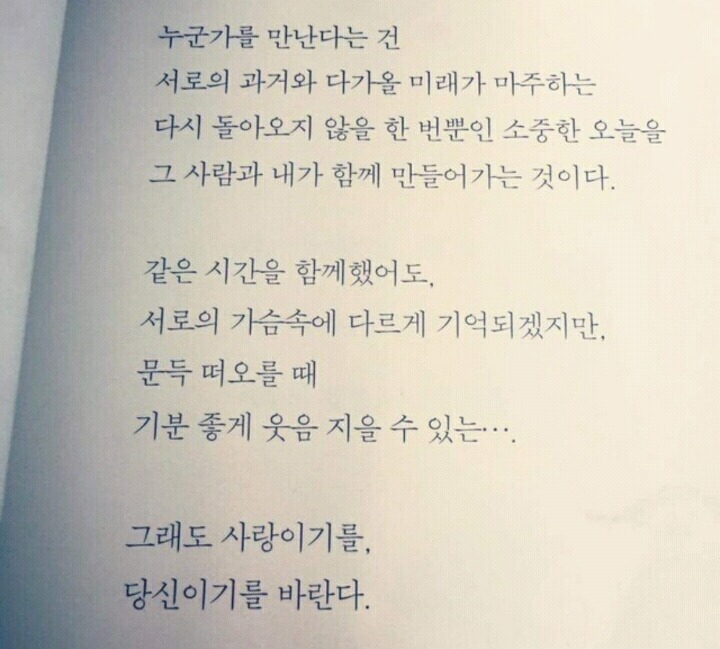 누군가를 만난다는 건
서로의 과거와 다가올 미래가 마주하는
다시 돌아오지 않을 한 번뿐인 소중한 오늘을
그 사람과 내가 함께 만들어가는 것이다.
같은 시간을 함께했어도,
서로의 가슴속에 다르게 기억되겠지만,
문득 떠오를 때
기분 좋게 웃음 지을 수 있는….
그래도 사랑이기를,
당신이기를 바란다.